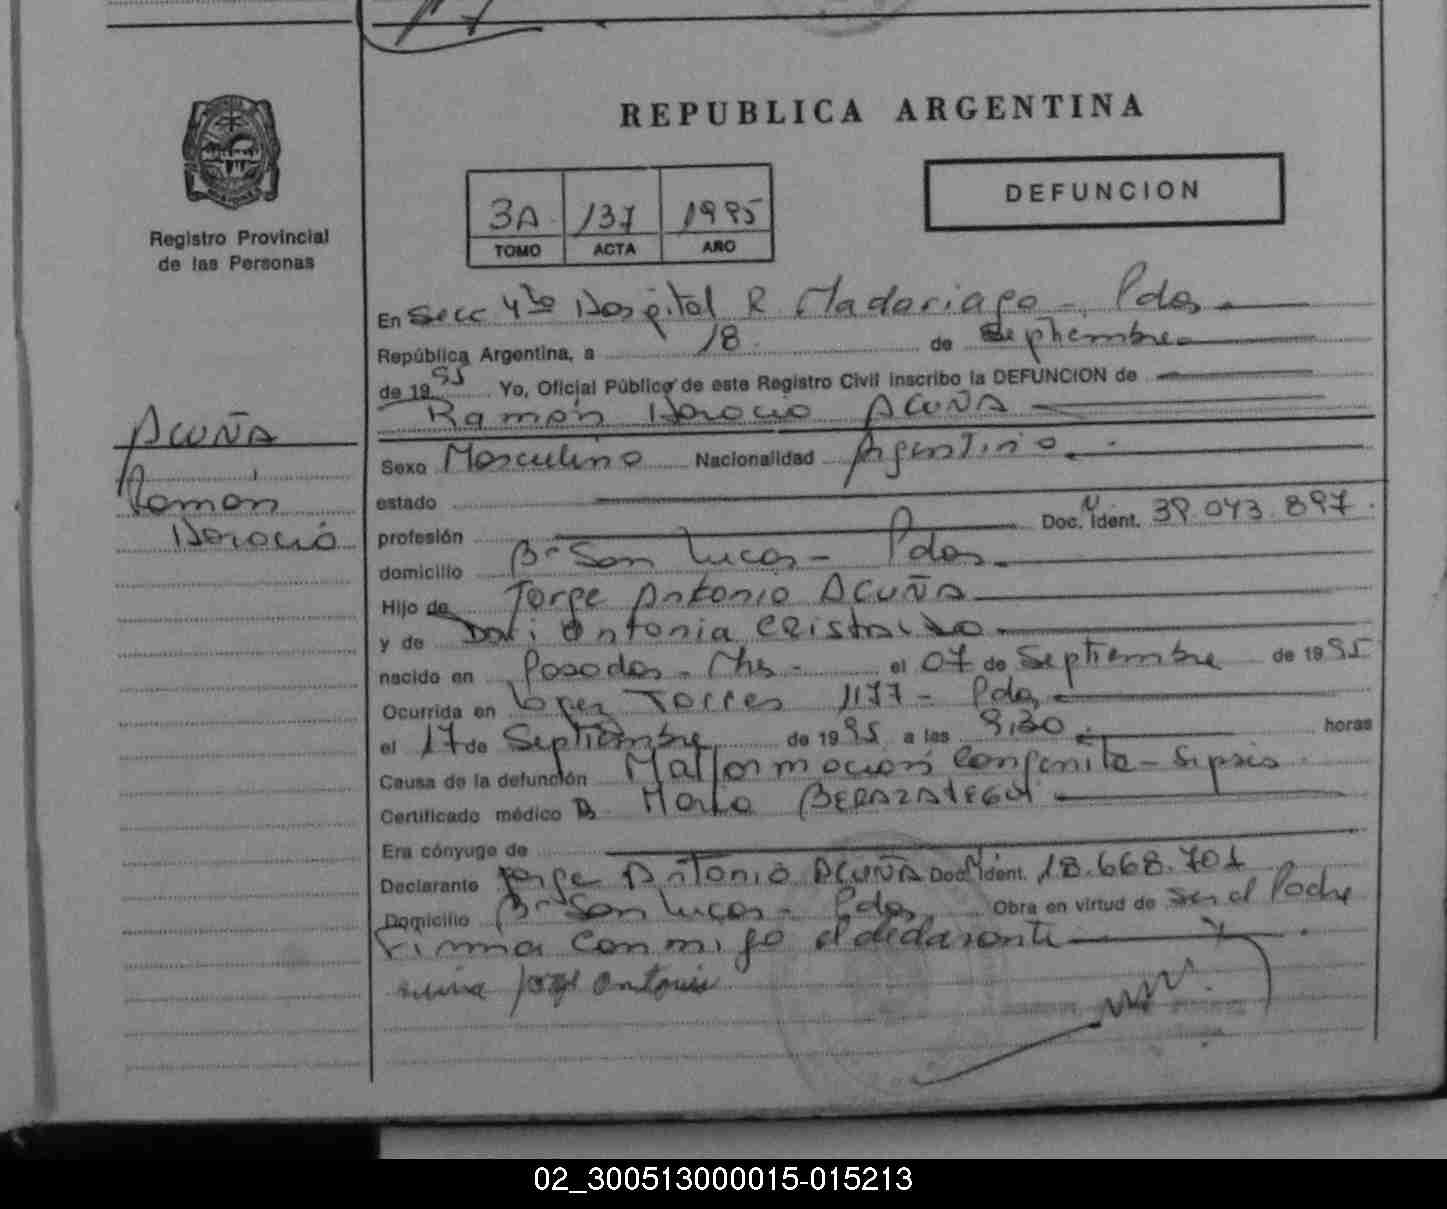 REPUBLICA ARGENTINA
DEFUNCION
3A 137 1995
TOMO ACTA AÑO
Registro Provincial
de las Personas
En Secc 4ta Hospital R Madariaga - Pdas
República Argentina, a 18 de Septiembre
de 1995 Yo, Oficial Público de este Registro Civil inscribo la DEFUNCION de
Ramón Horacio ACUÑA
ACUÑA
Ramón
Horacio
Sexo Masculino Nacionalidad Argentino
estado
profesión Doc. Ident. 39.043.897
domicilio Bº San Lucas - Pdas
Hijo de Jorge Antonio ACUÑA
y de Antonia
nacido en Posadas - Mns - el 07 de Septiembre de 1995
Ocurrida en López Torres 1177 - Pdas
el 17 de Septiembre de 1995 a las 9,30 horas
Causa de la defunción Malformación Congenita - Sepsis
Certificado médico Dr. BERAZATEGUI
Era cónyuge de
Declarante Jorge Antonio ACUÑA Doc. Ident. 18.668.701
Domicilio Bº San Lucas - Pdas Obra en virtud de ser el Padre
Firma conmigo el declarante
Jorge Antonio
02_300513000015-015213